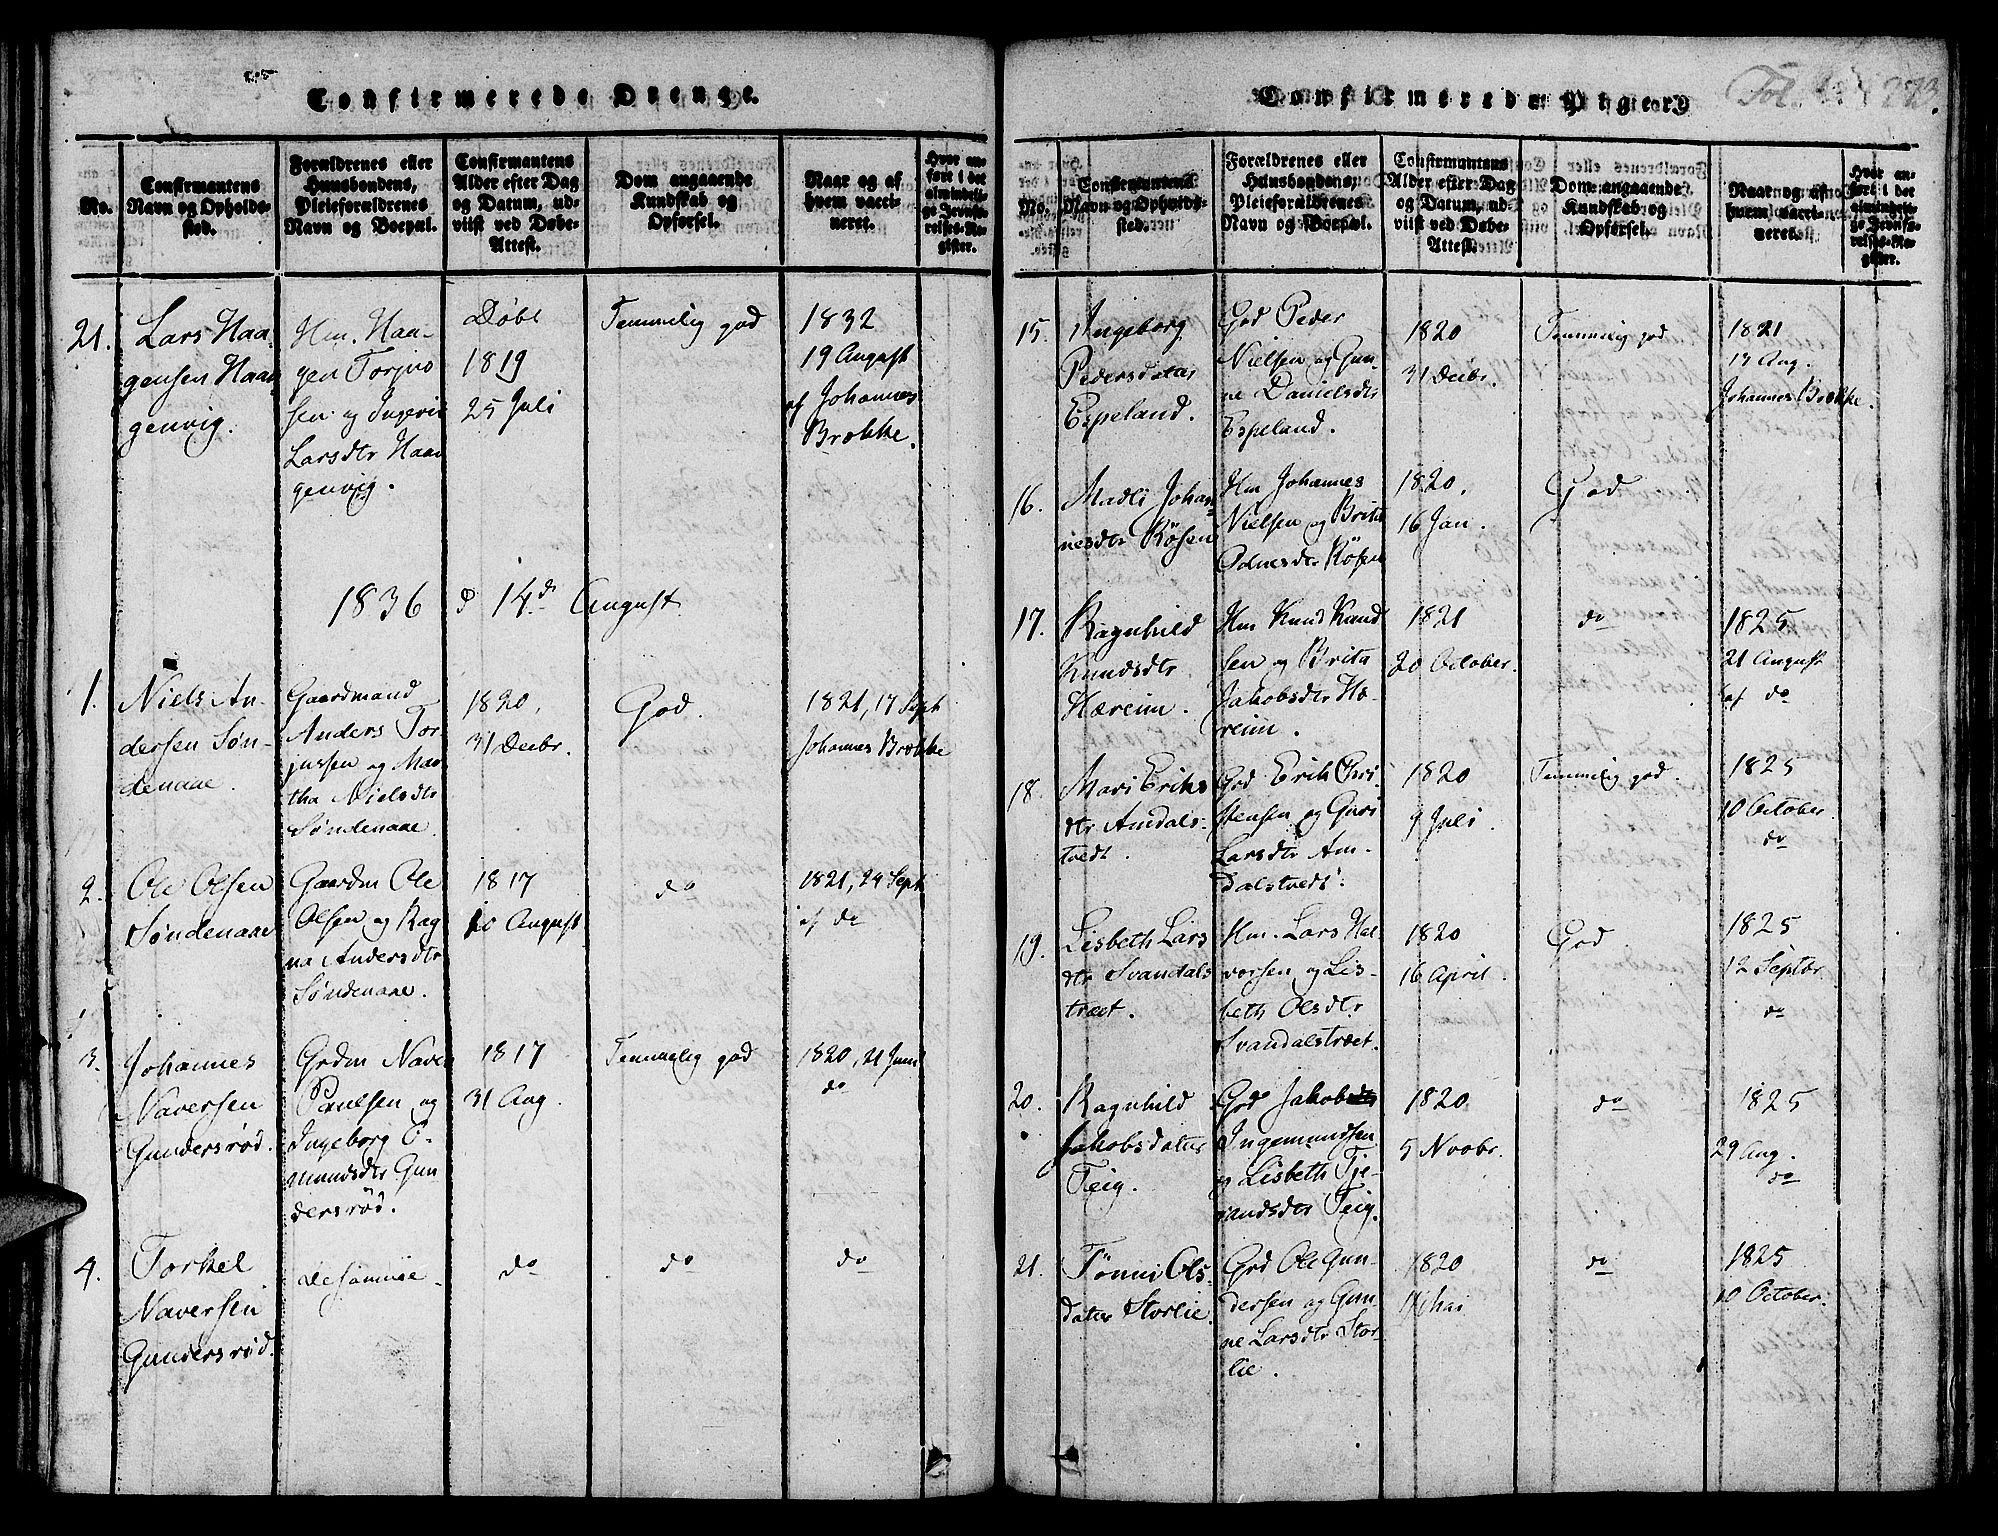 Confirmerede Drenge.
No.
Confirmantens
Navn og Opholds-
sted.
Forældrenes eller
Huusbondens,
Pleieforældrenes
Navn og Boepæl.
Confirmantens
Alder efter Dag
og Datum, ud-
viist ved Døbe-
Attest.
Dom angaaende
Kundskab og
Opførsel.
Naar og af
hvem vacci-
neret.
Hvor an-
ført i det
almindeli-
ge Jevnfø-
relses-Re-
gister.
21.
Lars Haa-
gensen Haa-
genvig.
Hm. Haa-
gen Torjus
sen og Ingeri
Larsdtr Haa
genvig.
Døbt
1819
25 Juli
Temmelig god
1832
19 August
af Johannes
Brække.
1836 d 14d August
1.
Niels An-
dersen Søn-
denaae.
Gaardmand
Anders Tor
jussen og Mar
tha Nielsdtr
Søndenaae.
1820.
31 Decbr.
God.
1821, 17 Sept
Johannes Brække
2.
Ole Olsen
Søndenaae
Gaardm Ole
Olsen og Rag
na Andersdtr
Søndenaae.
1817
10 August
do
1821, 24 Sept
af do
3.
Johannes
Naversen
Gundersrød.
Grdm Naver
Paulsen og
Ingeborg O-
mundsdtr Gun
dersrød.
1817
31 Aug.
Temmelig god
1820, 21 Juni
do
4.
Torkel
Naversen
Gundersrød.
de samme
do
do
do
Confirmerede Piger.
Fol. 223.
No.
Confirmantens
Navn og Opholds-
sted.
Forældrenes eller
Huusbondens,
Pleieforældrenes
Navn og Boepæl.
Confirmantens
Alder efter Dag
og Datum, ud-
viist ved Døbe-
Attest.
Dom angaaende
Kundskab og
Opførsel.
Naar og af
hvem vacci-
neret.
Hvor an-
ført i det
almindeli-
ge Jevnfø-
relses-Re-
gister.
15.
Ingeborg
Pedersdatter
Espeland.
Grd Peder
Nielsen og Gun-
ne Danielsdtr
Espeland.
1820
31 Decbr.
Temmelig god
1821
13 Aug.
Johannes Brække.
16.
Madli Johan
nesdtr Røsen
Hm Johannes
Nielsen og Brita
Odnesdtr Røsen
1820.
16 Jan.
God
17.
Ragnhild
Knudsdtr
Hæreim.
Hm Knud Knud
sen og Brita
Jakobsdtr Hæ-
reim.
1821
20 October.
do
1825
21 August
af do
18.
Mari Eriks
dtr Amdals-
tvedt.
Grd Erik Chri
stensen og Guri
Larsdtr Am-
dalstvedt.
1820
9 Juli.
Temmelig god.
1825
10 October.
do
19.
Lisbeth Lars
dtr Svandals
træet.
Hm. Lars Hal-
vorsen og Lis-
beth Olsdtr
Svandalstræet.
1820
16 April.
God
1825
12 Septbr.
do
20.
Ragnhild
Jakobsdatter
Teig.
Grd Jakob
Ingemundsen
og Lisbeth Tje-
randsdtr Teig.
1820
5 Novbr.
do
1825
29 Aug.
do
21.
Tønni Ols-
datter Storlie.
Grd Ole Gun-
dersen og Gun-
ne Larsdtr Stor-
lie.
1820
11 Mai
do
1825
10 October.